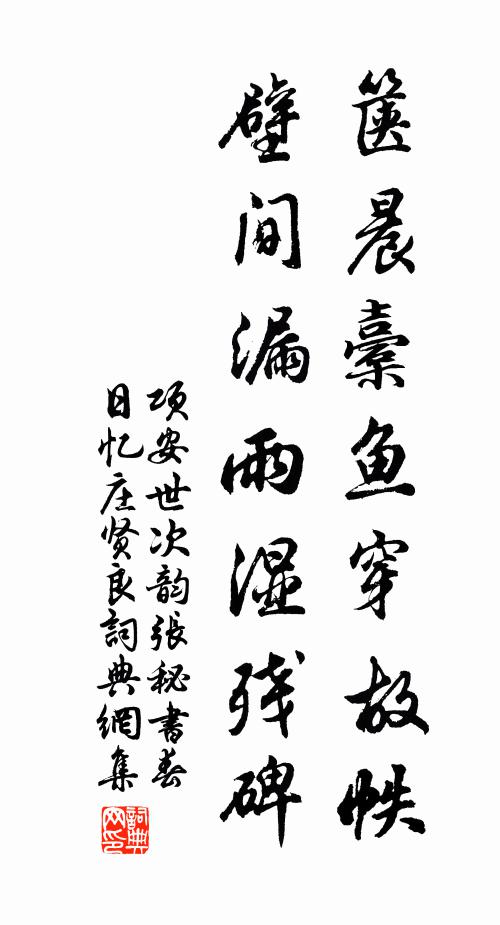 箧晨鱼穿故帙
壁间漏雨湿残碑
项安世次韵張秘書春
日忆庄贤良詞典網集
詞典
网印